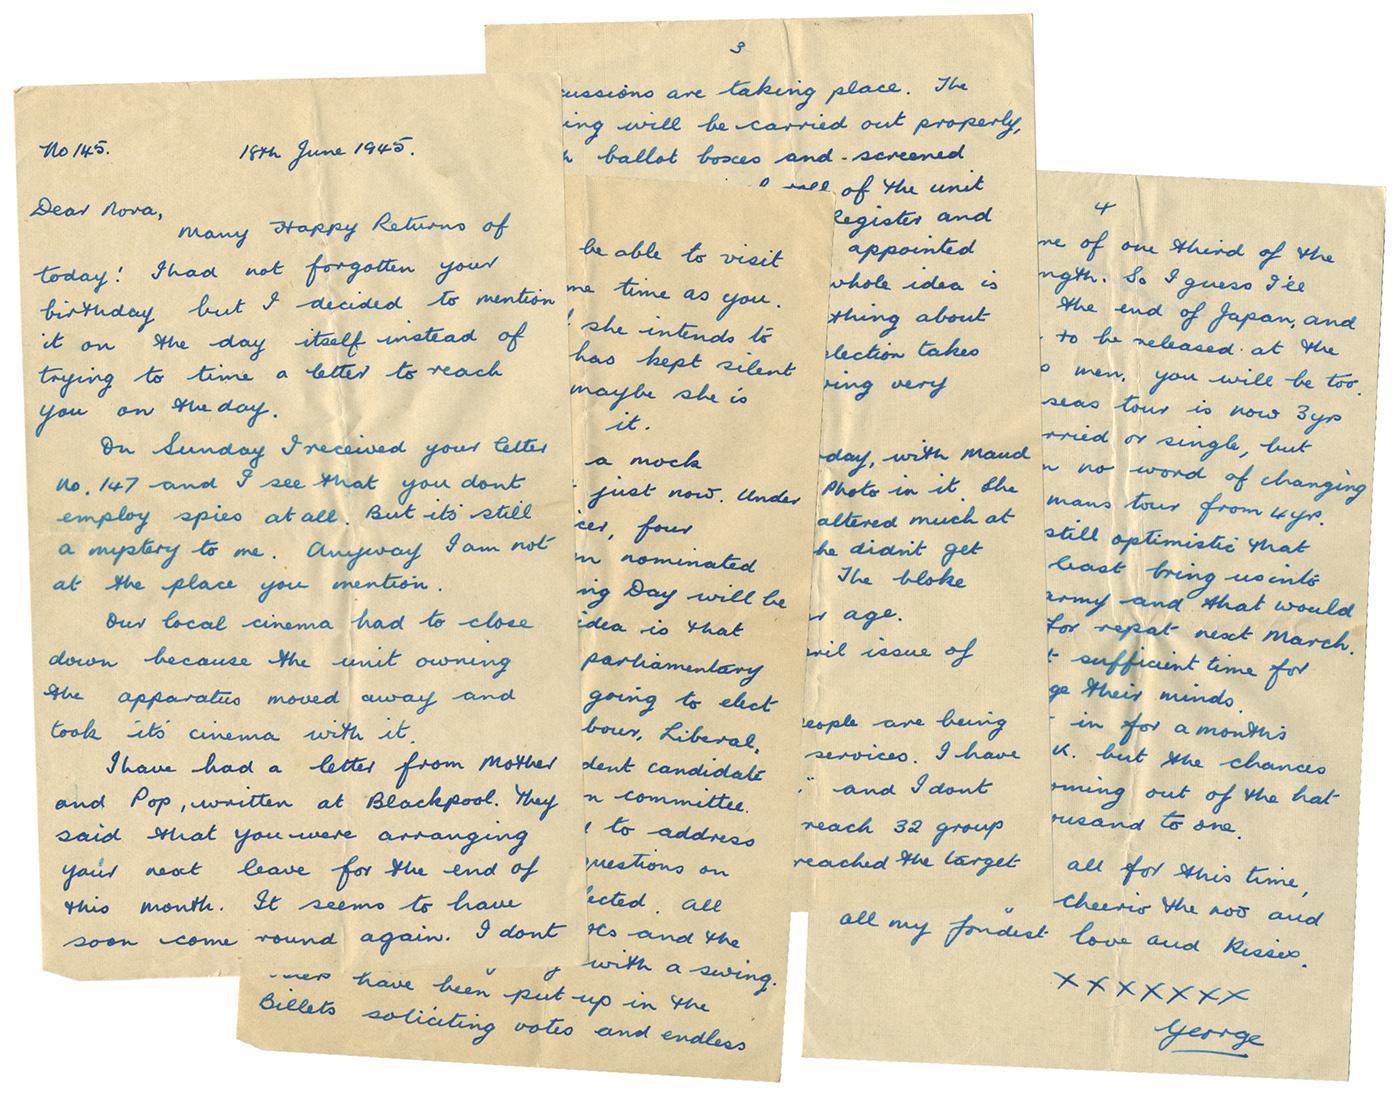 No 145. 18th June 1945.
Dear Nora,
Many Happy Returns of
today! I had not forgotten your
birthday but I decided to mention
it on the day itself instead of
trying to time a letter to reach
you on the day.
On Sunday I received your letter
No. 147 and I see that you dont
employ spies at all. But it's still
a mystery to me. Anyway I am not
at the place you mention.
Our local cinema had to close
down because the unit owning
the apparatus moved away and
took it's cinema with it.
I have had a letter from Mother
and Pop, written at Blackpool. They
said that you were arranging
your next leave for the end of
this month. It seems to have
soon come round again. I dont
be able to visit
me time as you.
she intends to
has kept silent
maybe she is
it.
a mock
just now. Under
icer, four
en nominated
ing Day will be
idea is that
parliamentary
going to elect
bour, Liberal,
dent candidate
n committee.
to address
questions on
lected. All
and the
with a swing.
have been put up in the
Billets soliciting votes and endless
3
cussions are taking place. The
ing will be carried out properly,
h ballot boxes and screened
roll of the unit
Register and
appointed
whole idea is
thing about
election takes
ving very
day, with Maud
Photo in it. She
altered much at
he didn't get
The bloke
r age.
ril issue of
eople are being
services. I have
" and I dont
reach 32 group
reached the target
4
me of one third of the
ngth. So I guess I'll
the end of Japan, and
to be released at the
men. You will be too.
seas tour is now 3yrs
rried or single, but
n no word of changing
mans tour from 4yr.
still optimistic that
least bring us into
army and that would
for repat next March.
t sufficient time for
ge their minds.
in for a months
K. but the chances
oming out of the hat
ousand to one.
all for this time,
cheerio the noo and
all my fondest love and Kisses.
XXXXXXX
George